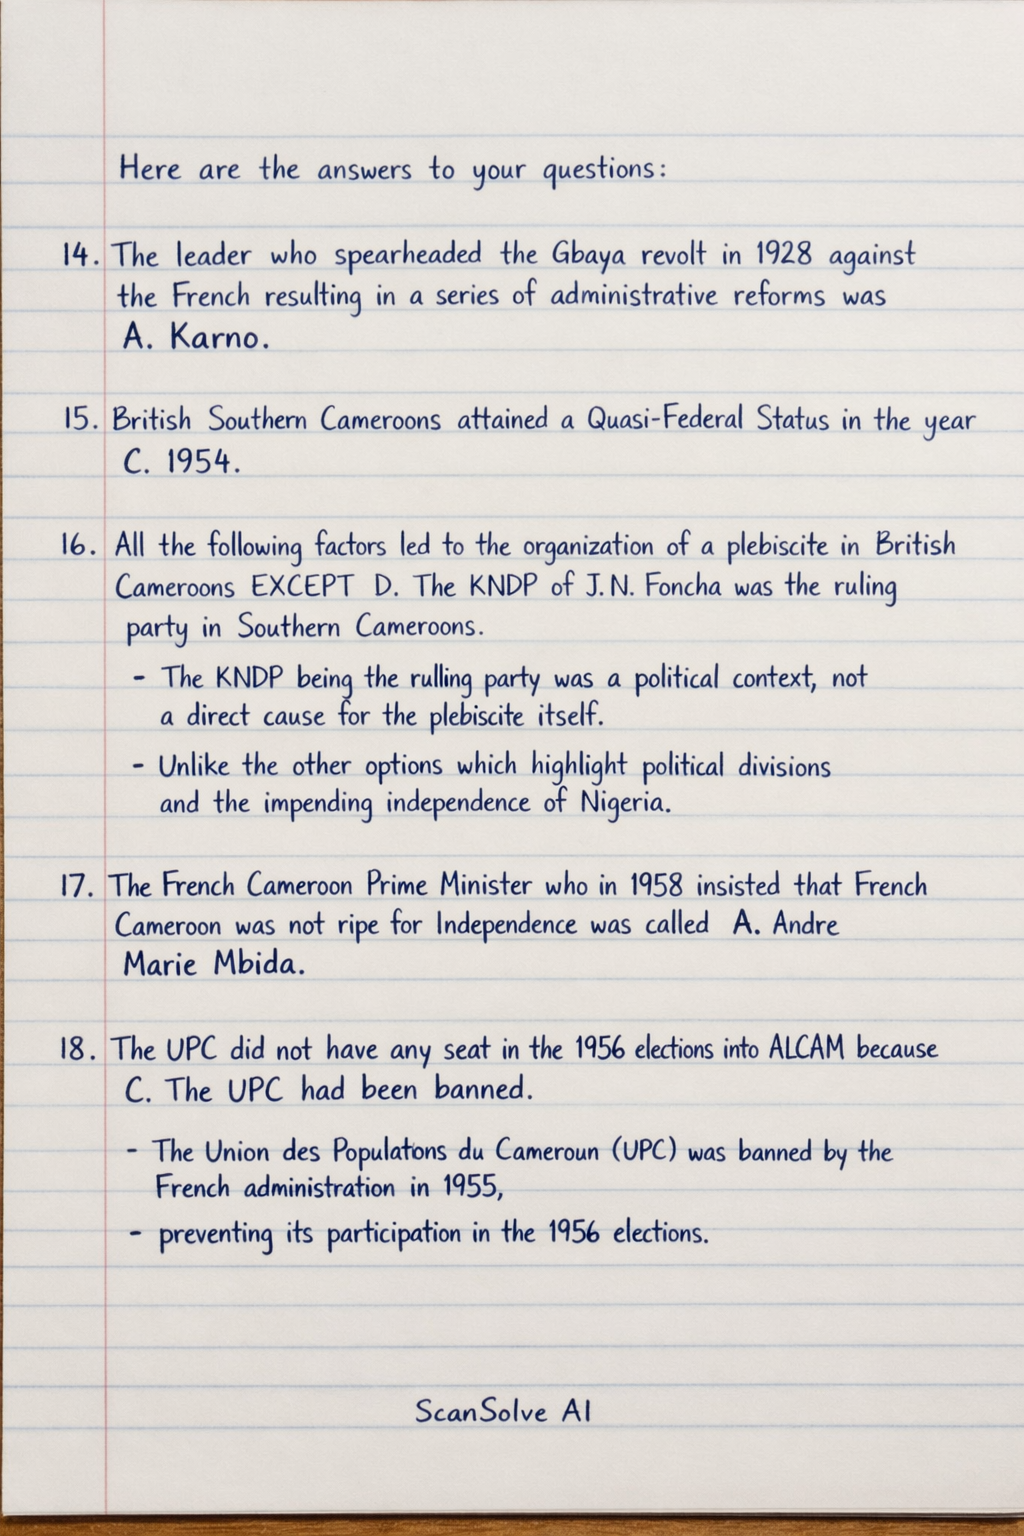 Here are the answers to your questions:
14. The leader who spearheaded the Gbaya revolt in 1928 against
the French resulting in a series of administrative reforms was
A. Karno.
15. British Southern Cameroons attained a Quasi-Federal Status in the year
C. 1954.
16. All the following factors led to the organization of a plebiscite in British
Cameroons EXCEPT D. The KNDP of J.N. Foncha was the ruling
party in Southern Cameroons.
- The KNDP being the rulling party was a political context, not
a direct cause for the plebiscite itself.
- Unlike the other options which highlight political divisions
and the impending independence of Nigeria.
17. The French Cameroon Prime Minister who in 1958 insisted that French
Cameroon was not ripe for Independence was called A. Andre
Marie Mbida.
18. The UPC did not have any seat in the 1956 elections into ALCAM because
C. The UPC had been banned.
- The Union des Populatons du Cameroun (UPC) was banned by the
French administration in 1955,
- preventing its participation in the 1956 elections.
ScanSolve AI